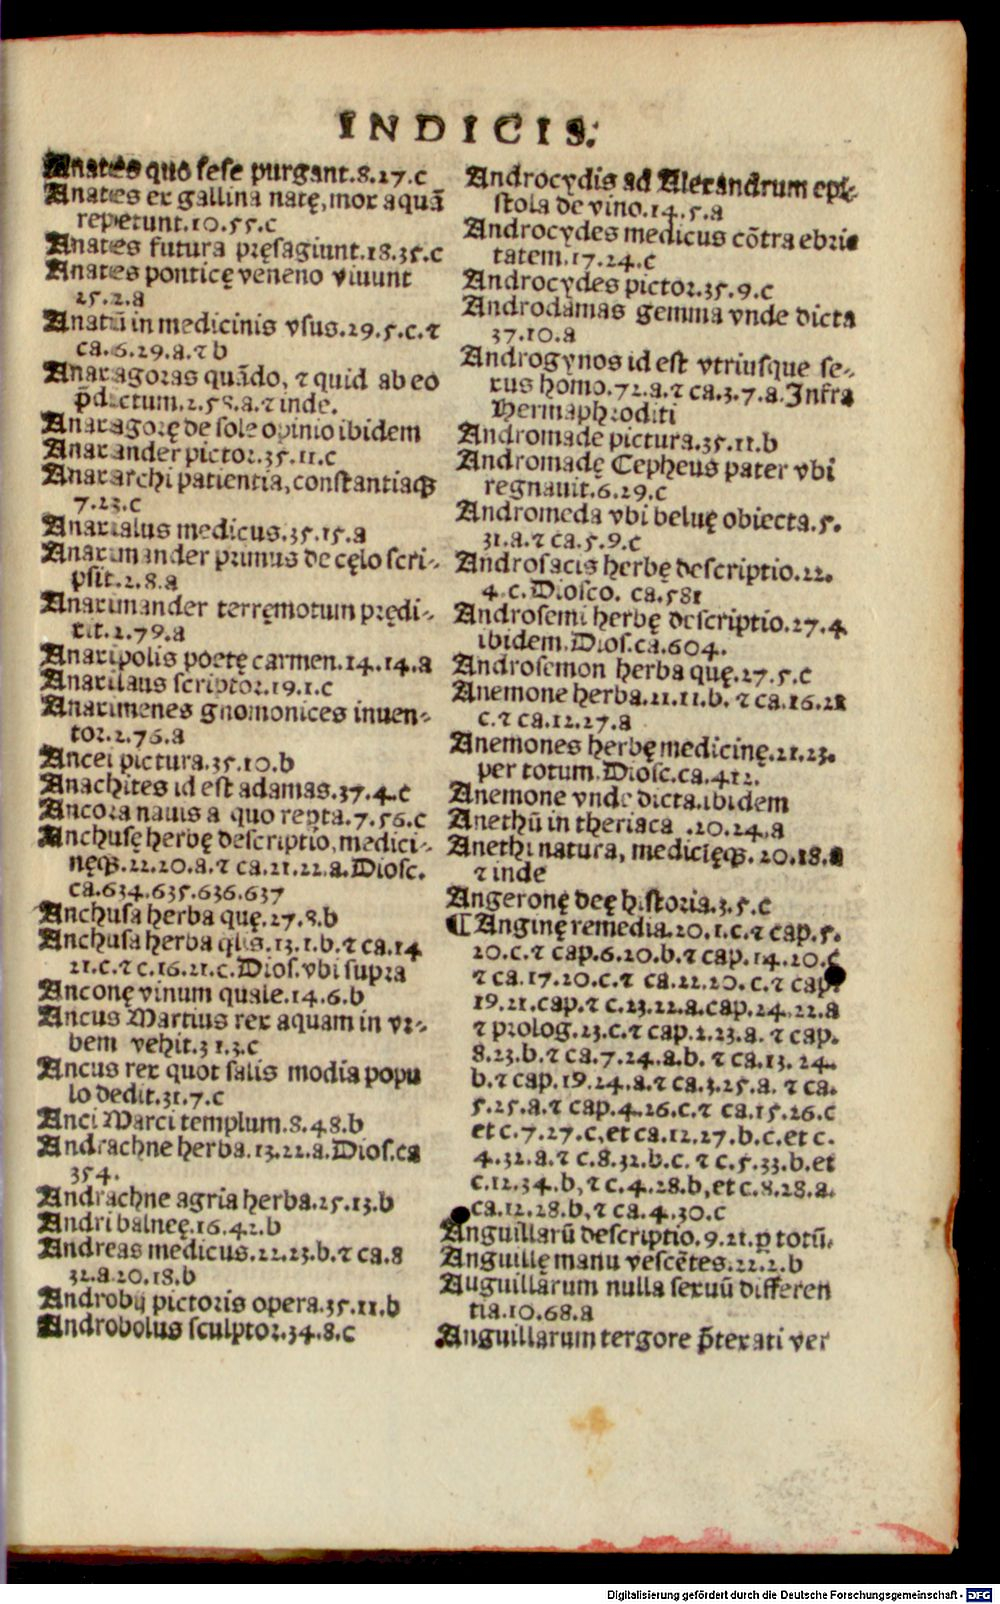 INDICIS.
Anates quo sese purgant.8.27.c
Anates ex gallina natę, mox aquā
repetunt.10.55.c
Anates futura pręsagiunt.18.35.c
Anates ponticę veneno viuunt
25.2.a
Anatū in medicinis vsus.29.5.c.⁊
ca.6.29.a.⁊ b
Anaxagoras quādo, ⁊ quid ab eo
p̄dictum.2.58.a.⁊ inde.
Anaxagorę de sole opinio ibidem
Anaxander pictor.35.11.c
Anaxarchi patientia, constantiaqꝫ
7.23.c
Anaxialus medicus.35.15.a
Anaximander primus de cęlo scri-
psit.2.8.a
Anaximander terręmotum prędi-
xit.2.79.a
Anaxipolis poetę carmen.14.14.a
Anaxilaus scriptor.19.1.c
Anaximenes gnomonices inuen-
tor.2.76.a
Ancei pictura.35.10.b
Anachites id est adamas.37.4.c
Ancora nauis a quo repta.7.56.c
Anchusę herbę descriptio, medici-
nęqꝫ.22.20.a.⁊ ca.21.22.a.Diosc.
ca.634.635.636.637
Anchusa herba quę.27.8.b
Anchusa herba q̄lis.13.1.b.⁊ ca.14
21.c.⁊ c.16.21.c.Dios.vbi supra
Anconę vinum quale.14.6.b
Ancus Martius rex aquam in vr-
bem vehit.31.3.c
Ancus rex quot salis modia popu
lo dedit.31.7.c
Anci Marci templum.8.48.b
Andrachne herba.13.22.a.Dios.ca
354.
Andrachne agria herba.25.13.b
Andri balneę.16.42.b
Andreas medicus.22.23.b.⁊ ca.8
32.a.20.18.b
Androbij pictoris opera.35.11.b
Androbolus sculptor.34.8.c
Androcydis ad Alexandrum epi-
stola de vino.14.5.a
Androcydes medicus cōtra ebrie
tatem.17.24.c
Androcydes pictor.35.9.c
Androdamas gemma vnde dicta
37.10.a
Androgynos id est vtriusque se-
xus homo.72.a.⁊ ca.3.7.a.Infra
Hermaphroditi
Andromade pictura.35.11.b
Andromadę Cepheus pater vbi
regnauit.6.29.c
Andromeda vbi beluę obiecta.5.
31.a.⁊ ca.5.9.c
Androsacis herbę descriptio.22.
4.c.Diosco. ca.581
Androsemi herbę descriptio.27.4
ibidem.Dios.ca.604.
Androsemon herba quę.27.5.c
Anemone herba.21.11.b. ⁊ ca.16.21
c.⁊ ca.12.27.a
Anemones herbę medicinę.21.23.
per totum.Diosc.ca.412.
Anemone vnde dicta.ibidem
Anethū in theriaca .20.24.a
Anethi natura, medicięqꝫ.20.18.a
⁊ inde
Angeronę deę historia.3.5.c
¶Anginę remedia.20.1.c.⁊ cap.5.
20.c.⁊ cap.6.20.b.⁊ cap.14.20.c
⁊ ca.17.20.c.⁊ ca.22.20.c.⁊ cap.
19.21.cap.⁊ c.23.22.a.cap.24.22.a
⁊ prolog.23.c.⁊ cap.2.23.a.⁊ cap.
8.23.b.⁊ ca.7.24.a.b. ⁊ ca.13.24.
b.⁊ cap.19.24.a.⁊ ca.3.25.a. ⁊ ca.
5.25.a.⁊ cap.4.26.c.⁊ ca.15.26.c
et c.7.27.c,et ca.12.27.b.c.et c.
4.32.a.⁊ c.8.32.b.c.⁊ c.5.33.b.et
c.12.34.b,⁊ c.4.28.b,et c.8.28.a.
ca.12.28.b,⁊ ca.4.30.c
Anguillarū descriptio.9.21.ꝑ totū.
Anguillę manu vescētes.22.2.b
Auguillarum nulla sexuū differen
tia.10.68.a
Anguillarum tergore p̄texati ver
Digitalisierung gefördert durch die Deutsche Forschungsgemeinschaft - DFG